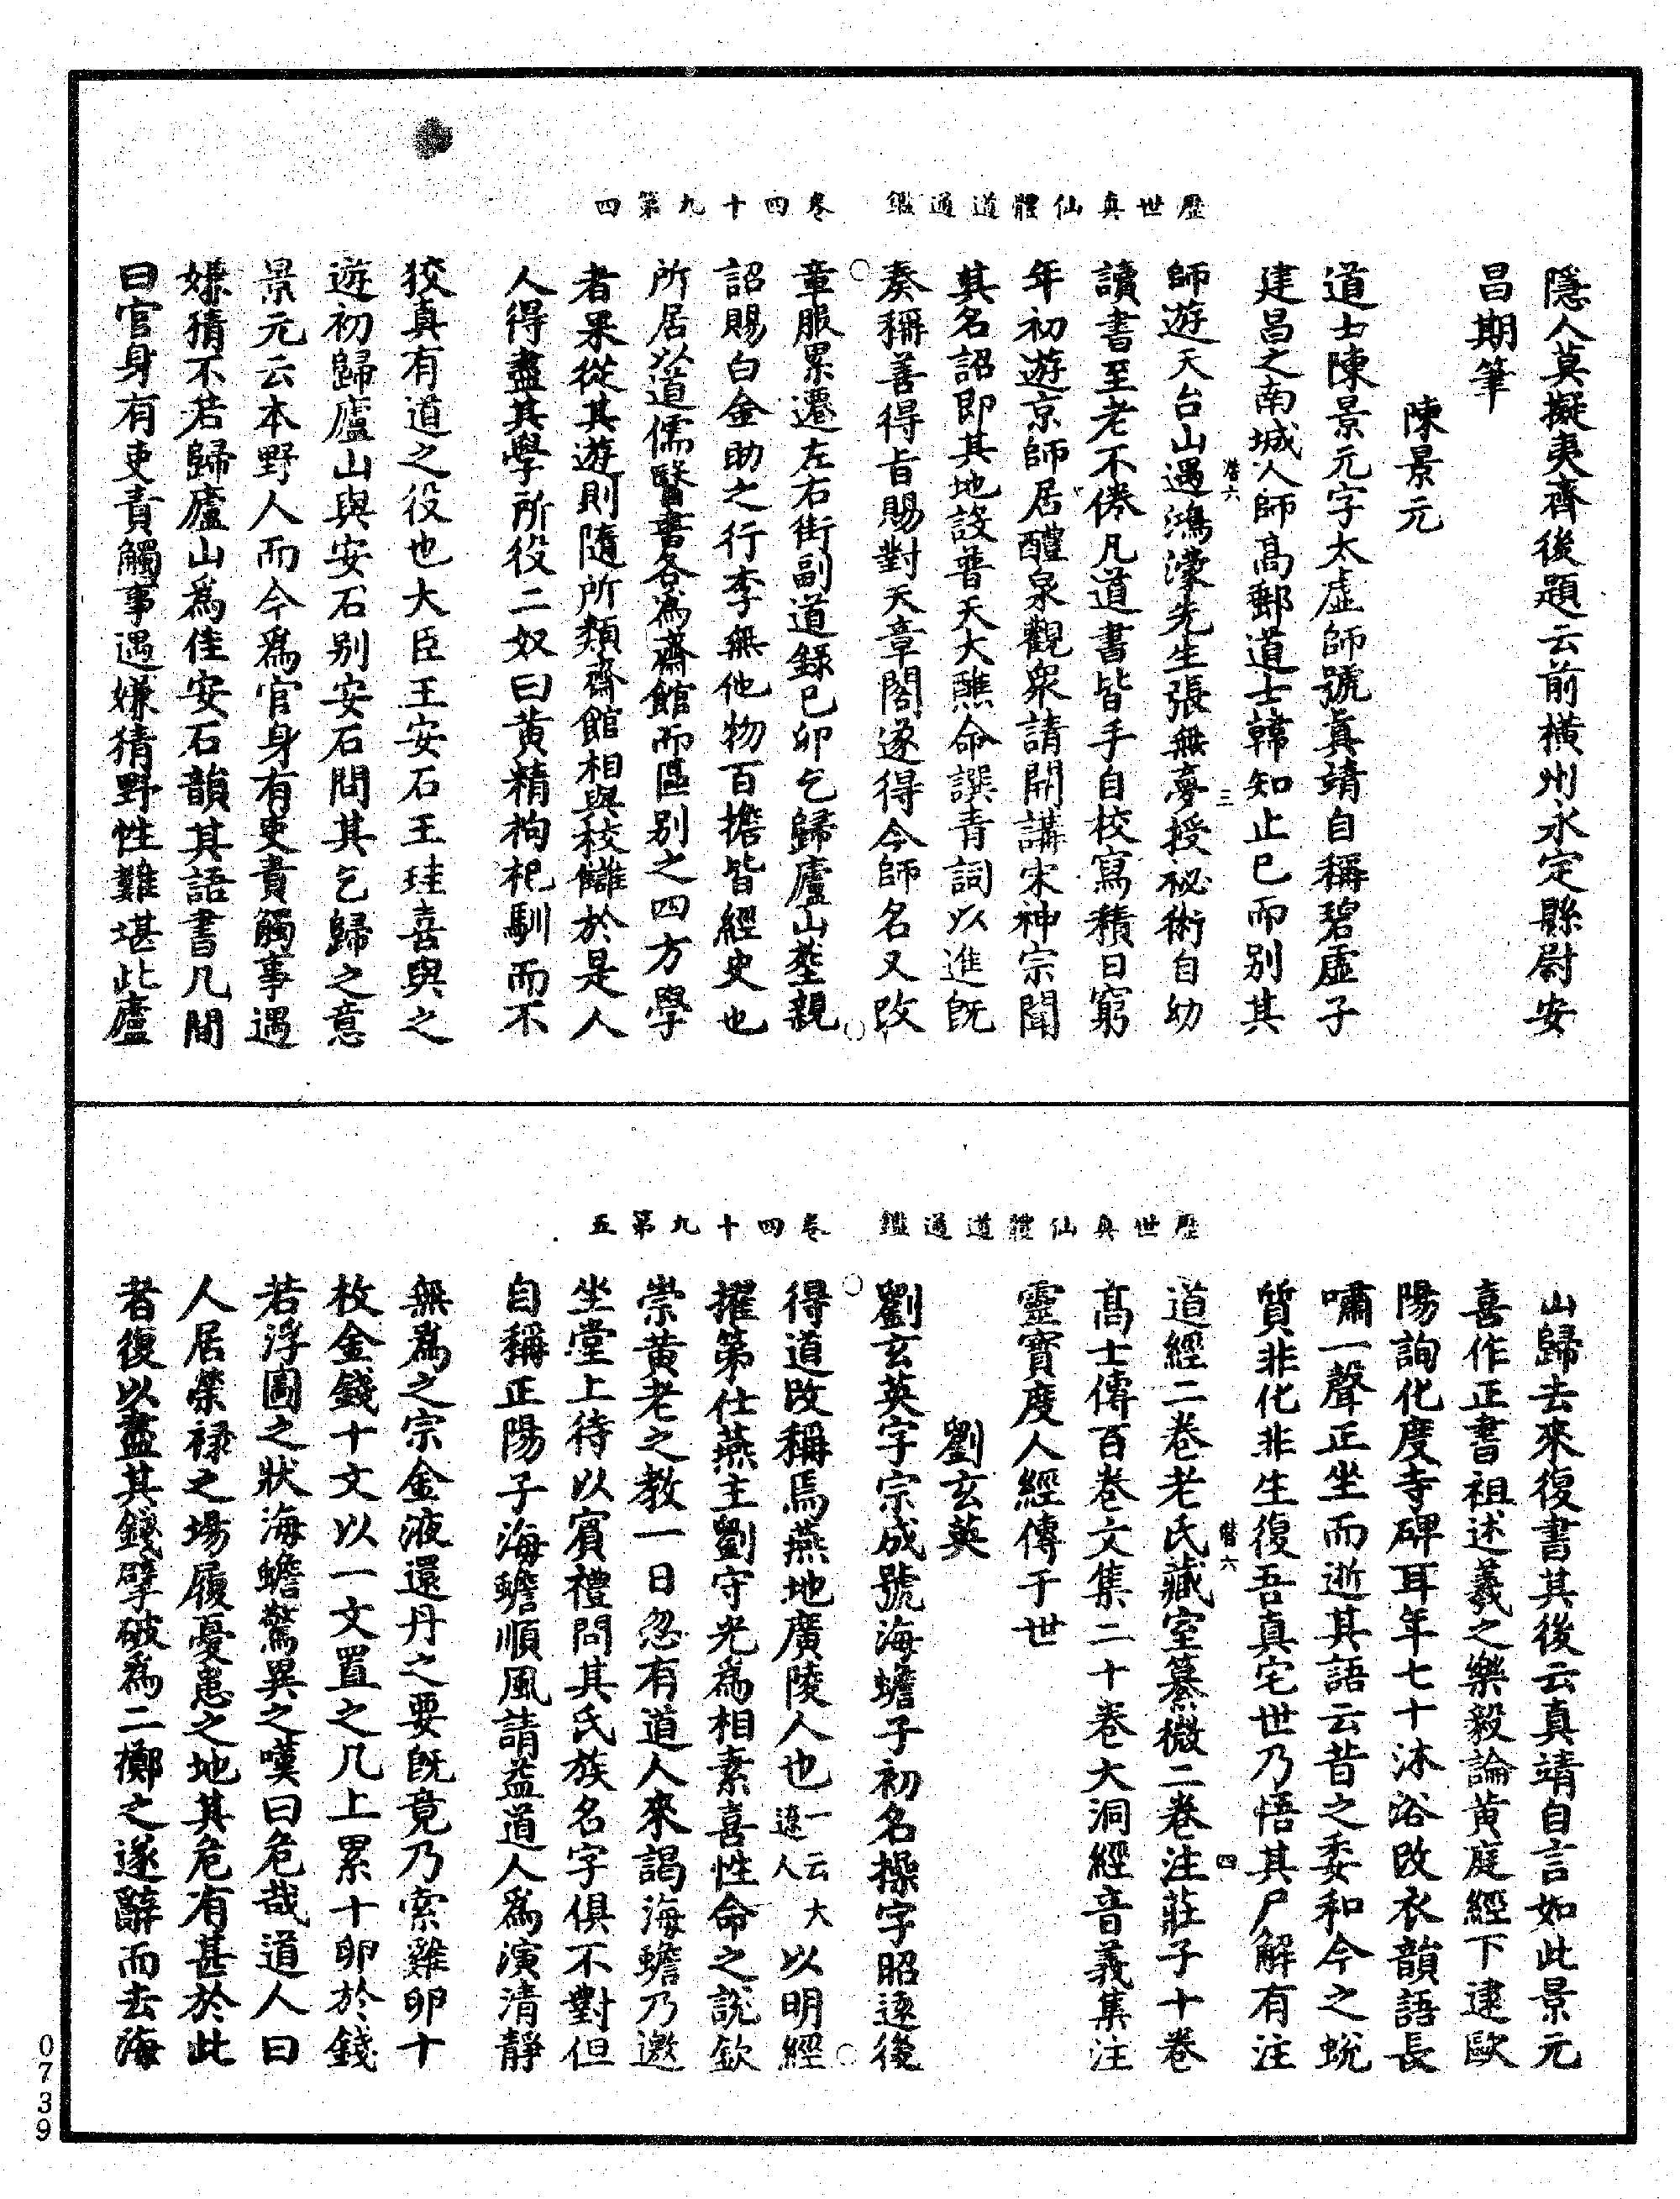 歷世真仙體道通鑑　卷四十九第四
隱人莫擬夷齊後題云前橫州永定縣尉安
昌期筆
陳景元
道士陳景元字太虛師號真靖自稱碧虛子
建昌之南城人師高郵道士韓知止已而別其
師遊天台山遇鴻濛先生張無夢授祕術自幼
讀書至老不倦凡道書皆手自校寫積日窮
年初遊京師居醴泉觀衆請開講宋神宗聞
其名詔即其地設普天大醮命譔青詞以進旣
奏稱善得旨賜對天章閣遂得今師名又改
章服累遷左右街副道錄已卯乞歸廬山塋親
詔賜白金助之行李無他物百擔皆經史也
所居以道儒醫書各爲齋館而區别之四方學
者果從其遊則隨所類齋館相與校讎於是人
人得盡其學所役二奴曰黃精枸杞馴而不
狡真有道之役也大臣王安石王珪喜與之
遊初歸廬山與安石别安石問其乞歸之意
景元云本野人而今爲官身有吏責觸事遇
嫌猜不若歸廬山爲佳安石韻其語書几間
曰官身有吏責觸事遇嫌猜野性難堪此廬
暦六
三
歷世真仙體道通鑑　卷四十九第五
山歸去來復書其後云真靖自言如此景元
喜作正書祖述羲之樂毅論黃庭經下逮歐
陽詢化度寺碑耳年七十沐浴改衣韻語長
嘯一聲正坐而逝其語云昔之委和今之蛻
質非化非生復吾真宅世乃悟其尸解有注
道經二卷老氏藏室纂微二卷注莊子十卷
高士傳百卷文集二十卷大洞經音義集注
靈寶度人經傳于世
劉玄英
劉玄英字宗成號海蟾子初名操字昭遠後
得道改稱焉燕地廣陵人也一云大遼人以明經
擢第仕燕主劉守光爲相素喜性命之說欽
崇黃老之教一日忽有道人來謁海蟾乃邀
坐堂上待以賓禮問其氏族名字俱不對但
自稱正陽子海蟾順風請益道人爲演清靜
無爲之宗金液還丹之要旣竟乃索雞卵十
枚金錢十文以一文置之几上累十卵於錢
若浮圖之狀海蟾驚異之嘆曰危哉道人曰
人居榮祿之場履憂患之地其危有甚於此
者復以盡其錢擘破爲二擲之遂辭而去海
暦六
四
0739